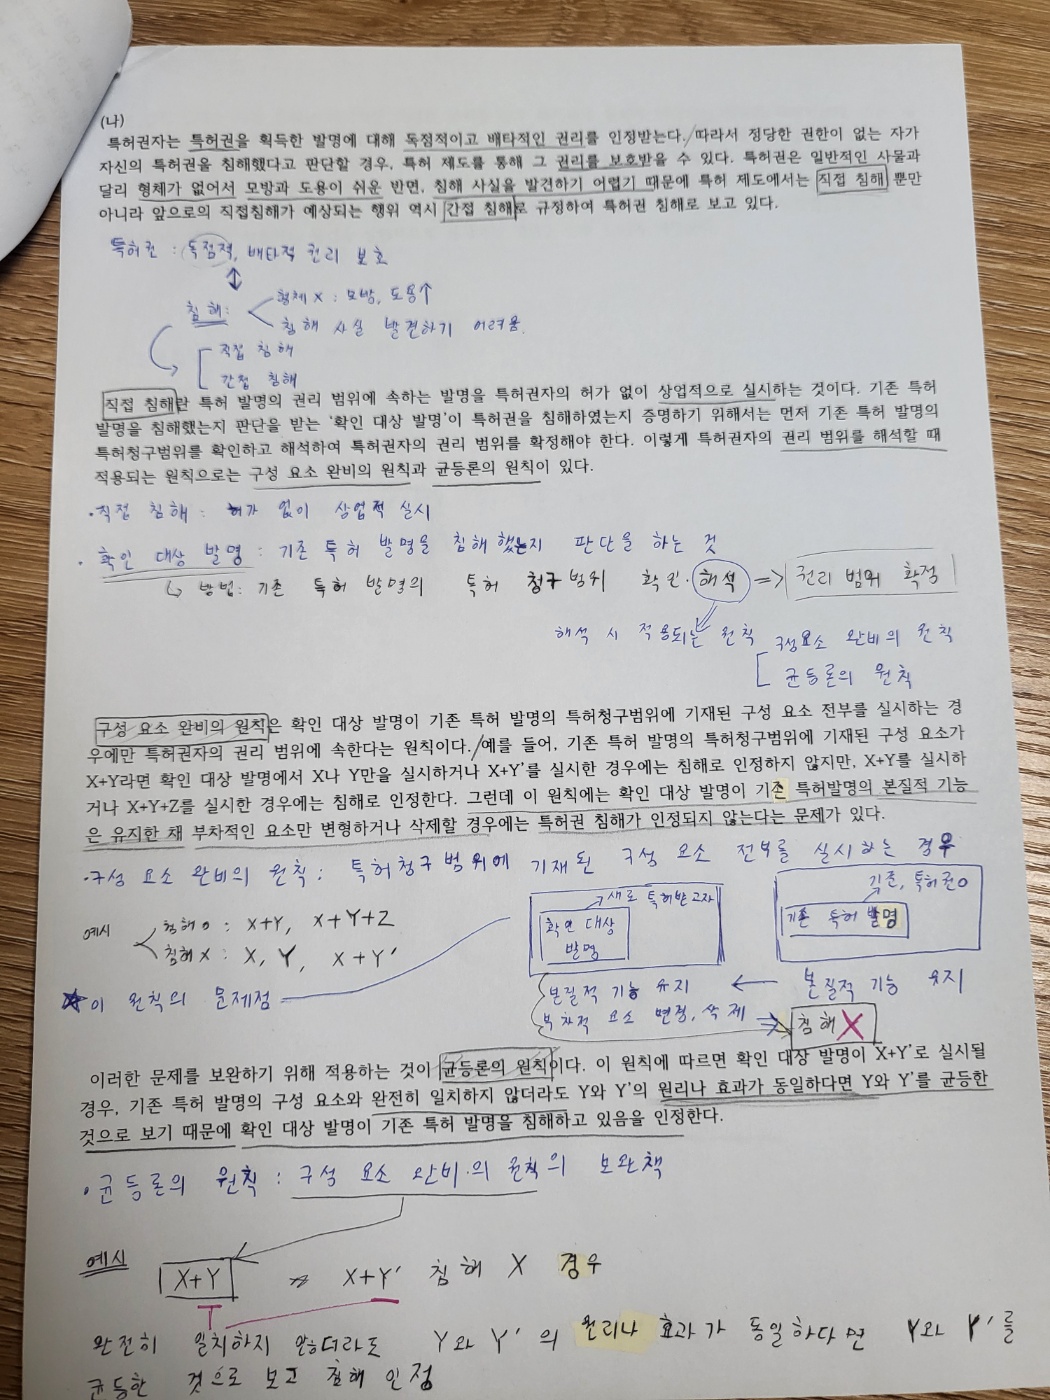 (나)
특허권자는 특허권을 획득한 발명에 대해 독점적이고 배타적인 권리를 인정받는다. 따라서 정당한 권한이 없는 자가
자신의 특허권을 침해했다고 판단할 경우, 특허 제도를 통해 그 권리를 보호받을 수 있다. 특허권은 일반적인 사물과
달리 형체가 없어서 모방과 도용이 쉬운 반면, 침해 사실을 발견하기 어렵기 때문에 특허 제도에서는 직접 침해 뿐만
아니라 앞으로의 직접침해가 예상되는 행위 역시 간접 침해로 규정하여 특허권 침해로 보고 있다.
특허권 : 독점적, 배타적 권리 보호
침해:
형체 X : 모방, 도용↑
침해 사실 발견하기 어려움.
직접 침해
간접 침해
직접 침해란 특허 발명의 권리 범위에 속하는 발명을 특허권자의 허가 없이 상업적으로 실시하는 것이다. 기존 특허
발명을 침해했는지 판단을 받는 '확인 대상 발명'이 특허권을 침해하였는지 증명하기 위해서는 먼저 기존 특허 발명의
특허청구범위를 확인하고 해석하여 특허권자의 권리 범위를 확정해야 한다. 이렇게 특허권자의 권리 범위를 해석할 때
적용되는 원칙으로는 구성 요소 완비의 원칙과 균등론의 원칙이 있다.
• 직접 침해 : 허가 없이 상업적 실시
• 확인 대상 발명 : 기존 특허 발명을 침해했는지 판단을 하는 것
↳ 방법: 기존 특허 발명의 특허 청구범위 확인·해석 => 권리 범위 확정
해석 시 적용되는 원칙
구성요소 완비의 원칙
균등론의 원칙
구성 요소 완비의 원칙은 확인 대상 발명이 기존 특허 발명의 특허청구범위에 기재된 구성 요소 전부를 실시하는 경
우에만 특허권자의 권리 범위에 속한다는 원칙이다. 예를 들어, 기존 특허 발명의 특허청구범위에 기재된 구성 요소가
X+Y라면 확인 대상 발명에서 X나 Y만을 실시하거나 X+Y'를 실시한 경우에는 침해로 인정하지 않지만, X+Y를 실시하
거나 X+Y+Z를 실시한 경우에는 침해로 인정한다. 그런데 이 원칙에는 확인 대상 발명이 기존 특허발명의 본질적 기능
은 유지한 채 부차적인 요소만 변형하거나 삭제할 경우에는 특허권 침해가 인정되지 않는다는 문제가 있다.
• 구성 요소 완비의 원칙 : 특허청구범위에 기재된 구성 요소 전부를 실시하는 경우
예시
침해 O : X+Y, X+Y+Z
침해 X : X, Y, X+Y'
★ 이 원칙의 문제점
새로 특허받고자
확인 대상
발명
기존, 특허권O
기존 특허 발명
본질적 기능 유지 ← 본질적 기능 유지
부차적 요소 변형, 삭제 ⇒ 침해 X
이러한 문제를 보완하기 위해 적용하는 것이 균등론의 원칙이다. 이 원칙에 따르면 확인 대상 발명이 X+Y'로 실시될
경우, 기존 특허 발명의 구성 요소와 완전히 일치하지 않더라도 Y와 Y'의 원리나 효과가 동일하다면 Y와 Y'를 균등한
것으로 보기 때문에 확인 대상 발명이 기존 특허 발명을 침해하고 있음을 인정한다.
• 균등론의 원칙 : 구성 요소 완비의 원칙의 보완책
예시
X+Y ⇒ X+Y' 침해 X 경우
완전히 일치하지 않더라도 Y와 Y'의 원리나 효과가 동일하다면 Y와 Y'를
균등한 것으로 보고 침해 인정